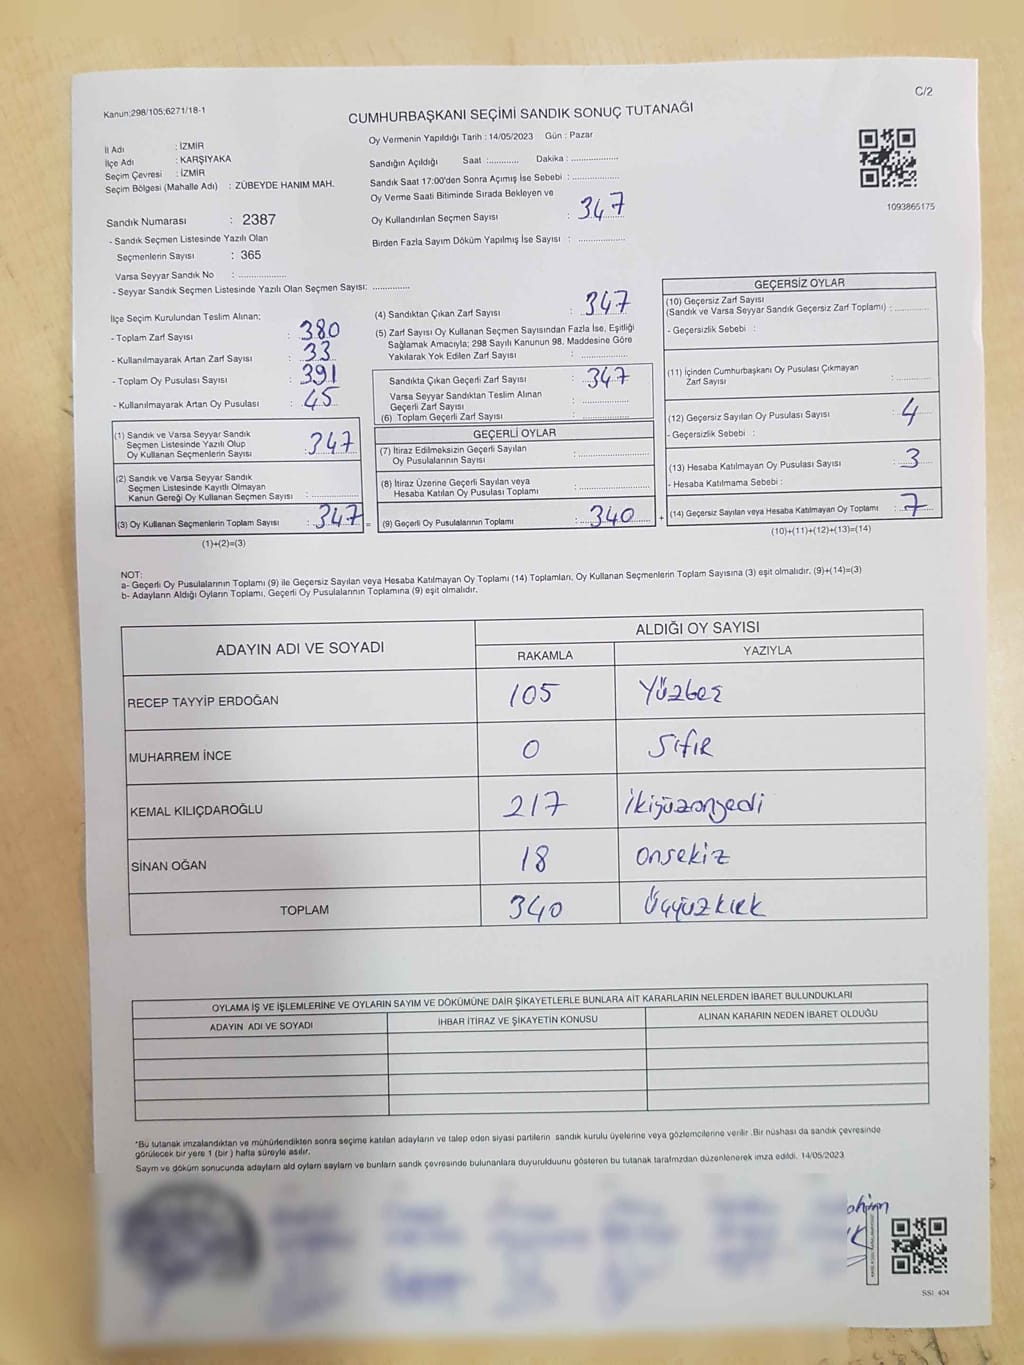 Kanun:298/105;6271/18-1
C/2
CUMHURBAŞKANI SEÇİMİ SANDIK SONUÇ TUTANAĞI
İl Adı : İZMİR
İlçe Adı : KARŞIYAKA
Seçim Çevresi : İZMİR
Seçim Bölgesi (Mahalle Adı) : ZÜBEYDE HANIM MAH.
Sandık Numarası : 2387
- Sandık Seçmen Listesinde Yazılı Olan
Seçmenlerin Sayısı : 365
Varsa Seyyar Sandık No : ..................
- Seyyar Sandık Seçmen Listesinde Yazılı Olan Seçmen Sayısı: ..............
Oy Vermenin Yapıldığı Tarih : 14/05/2023 Gün : Pazar
Sandığın Açıldığı Saat :............ Dakika : ..................
Sandık Saat 17:00'den Sonra Açımış İse Sebebi : ..................
Oy Verme Saati Bitiminde Sırada Bekleyen ve
Oy Kullandırılan Seçmen Sayısı : 347
Birden Fazla Sayım Döküm Yapılmış İse Sayısı : ..................
1093865175
İlçe Seçim Kurulundan Teslim Alınan:
- Toplam Zarf Sayısı : 380
- Kullanılmayarak Artan Zarf Sayısı : 33
- Toplam Oy Pusulası Sayısı : 391
- Kullanılmayarak Artan Oy Pusulası : 45
(1) Sandık ve Varsa Seyyar Sandık
Seçmen Listesinde Yazılı Olup
Oy Kullanan Seçmenlerin Sayısı : 347
(2) Sandık ve Varsa Seyyar Sandık
Seçmen Listesinde Kayıtlı Olmayan
Kanun Gereği Oy Kullanan Seçmen Sayısı : ..................
(3) Oy Kullanan Seçmenlerin Toplam Sayısı : 347 =
(1)+(2)=(3)
(4) Sandıktan Çıkan Zarf Sayısı : 347
(5) Zarf Sayısı Oy Kullanan Seçmen Sayısından Fazla İse, Eşitliği
Sağlamak Amacıyla; 298 Sayılı Kanunun 98. Maddesine Göre
Yakılarak Yok Edilen Zarf Sayısı : ..................
Sandıkta Çıkan Geçerli Zarf Sayısı : 347
Varsa Seyyar Sandıktan Teslim Alınan
Geçerli Zarf Sayısı : ..................
(6) Toplam Geçerli Zarf Sayısı : ..................
GEÇERLİ OYLAR
(7) İtiraz Edilmeksizin Geçerli Sayılan
Oy Pusulalarının Sayısı : ..................
(8) İtiraz Üzerine Geçerli Sayılan veya
Hesaba Katılan Oy Pusulası Toplamı : ..................
(9) Geçerli Oy Pusulalarının Toplamı : 340 +
GEÇERSİZ OYLAR
(10) Geçersiz Zarf Sayısı
(Sandık ve Varsa Seyyar Sandık Geçersiz Zarf Toplamı) : ............
- Geçersizlik Sebebi :
(11) İçinden Cumhurbaşkanı Oy Pusulası Çıkmayan
Zarf Sayısı : ............
(12) Geçersiz Sayılan Oy Pusulası Sayısı : 4
- Geçersizlik Sebebi :
(13) Hesaba Katılmayan Oy Pusulası Sayısı : 3
- Hesaba Katılmama Sebebi :
(14) Geçersiz Sayılan veya Hesaba Katılmayan Oy Toplamı : 7
(10)+(11)+(12)+(13)=(14)
NOT:
a- Geçerli Oy Pusulalarının Toplamı (9) ile Geçersiz Sayılan veya Hesaba Katılmayan Oy Toplamı (14) Toplamları, Oy Kullanan Seçmenlerin Toplam Sayısına (3) eşit olmalıdır. (9)+(14)=(3)
b- Adayların Aldığı Oyların Toplamı, Geçerli Oy Pusulalarının Toplamına (9) eşit olmalıdır.
ADAYIN ADI VE SOYADI
ALDIĞI OY SAYISI
RAKAMLA YAZIYLA
RECEP TAYYİP ERDOĞAN 105 Yüzbeş
MUHARREM İNCE 0 Sıfır
KEMAL KILIÇDAROĞLU 217 İkiyüzonyedi
SİNAN OĞAN 18 Onsekiz
TOPLAM 340 Üçyüzkırk
OYLAMA İŞ VE İŞLEMLERİNE VE OYLARIN SAYIM VE DÖKÜMÜNE DAİR ŞİKAYETLERLE BUNLARA AİT KARARLARIN NELERDEN İBARET BULUNDUKLARI
ADAYIN ADI VE SOYADI İHBAR İTİRAZ VE ŞİKAYETİN KONUSU ALINAN KARARIN NEDEN İBARET OLDUĞU
*Bu tutanak imzalandıktan ve mühürlendikten sonra seçime katılan adayların ve talep eden siyasi partilerin sandık kurulu üyelerine veya gözlemcilerine verilir .Bir nüshası da sandık çevresinde
görülecek bir yere 1 (bir ) hafta süreyle asılır.
Sayım ve döküm sonucunda adayların ald oyların sayların ve bunların sandk çevresinde bulunanlara duyurulduunu gösteren bu tutanak tarafmzdan düzenlenerek imza edildi. 14/05/2023
SSI 404